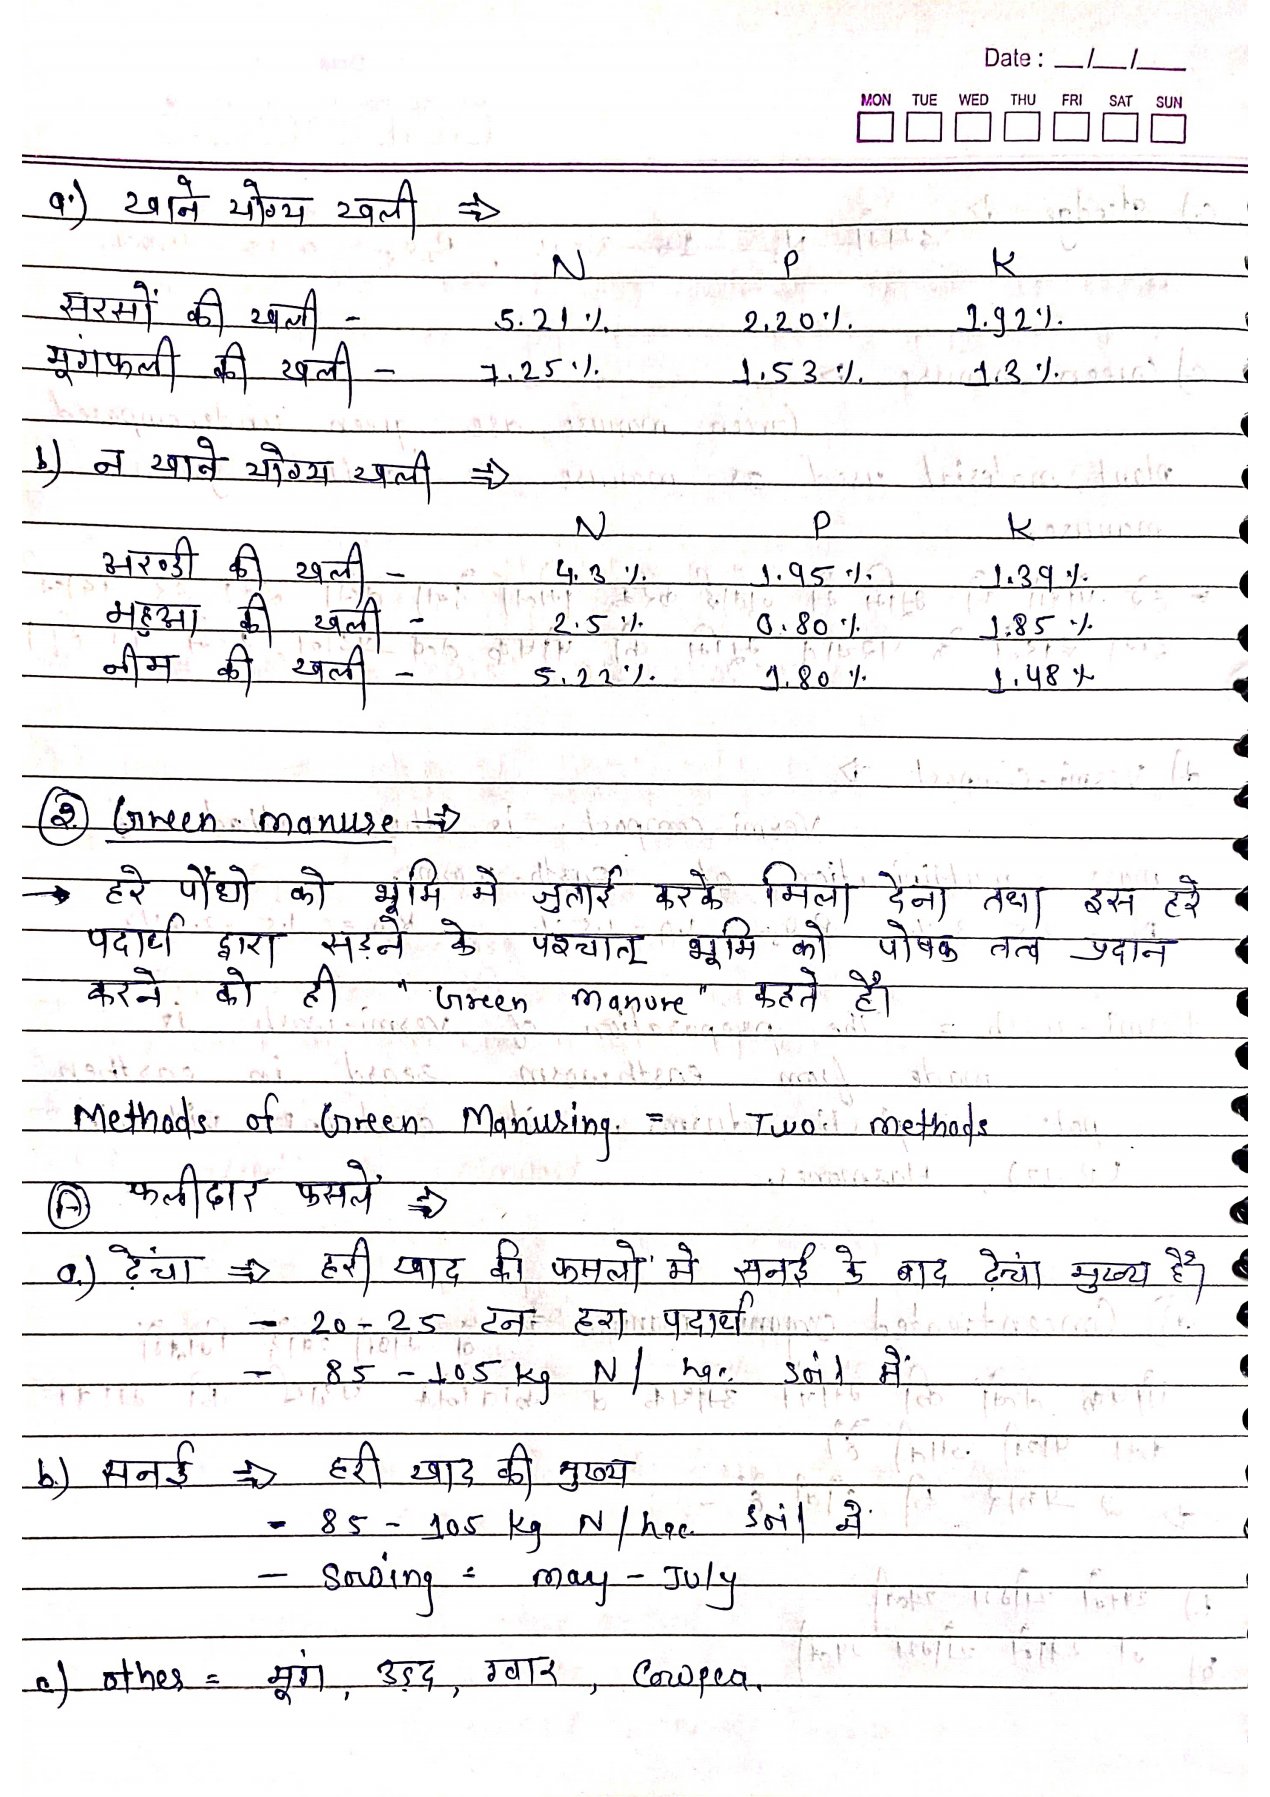 Date : __/__/___
MON TUE WED THU FRI SAT SUN
a.) खाने योग्य खली ⇒
N P K
सरसों की खली - 5.21% 2.20% 1.92%
मूंगफली की खली - 7.25% 1.53% 1.3%
b) न खाने योग्य खली ⇒
N P K
अरण्डी की खली - 4.3% 1.95% 1.39%
महुआ की खली - 2.5% 0.80% 1.85%
नीम की खली - 5.22% 1.80% 1.48%
2. Green manure ⇒
→ हरे पौंधो को भूमि में जुताई करके मिला देना तथा इस हरे
पदार्थ द्वारा सड़ने के पश्चात् भूमि को पोषक तत्व प्रदान
करने को ही "Green Manure" कहते हैं।
Methods of Green Manuring = Two methods
A फलीदार फसलें ⇒
a.) ढ़ेंचा ⇒ हरी खाद की फसलों में सनई के बाद ढ़ेंचा मुख्य है।
- 20-25 टन हरा पदार्थ
- 85-105 kg N/ hac. soil में
b.) सनई ⇒ हरी खाद की मुख्य
- 85-105 kg N/hac. soil में
- Sowing = may-July
c) other = मूंग, उड़द, ग्वार, Cowpea.